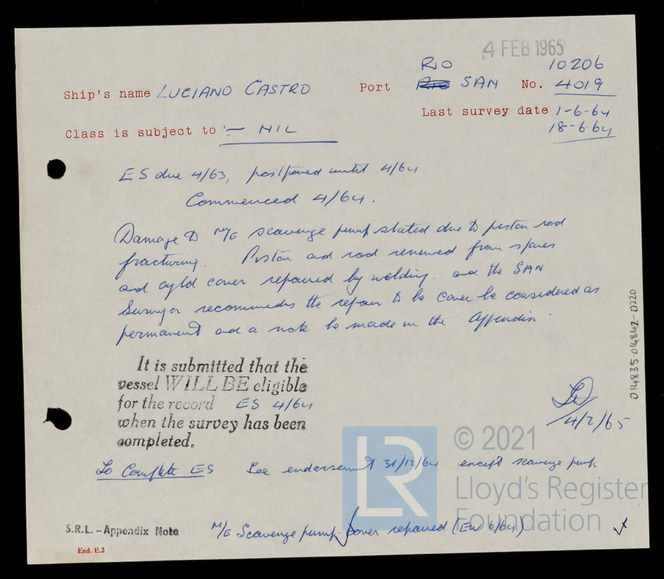 4 FEB 1965
RIO 10206
Ship's name LUCIANO CASTRO Port RIO SAN No. 4019
Last survey date 1-6-64
Class is subject to :- NIL 18-6-64
ES due 4/63, postponed until 4/64
Commenced 4/64.
Damage to M/E scavenge pump stated due to piston rod
fracturing. Piston and rod renewed from spares
and cyld cover repaired by welding. and the SAN
Surveyor recommends the repair to the cover be considered as
permanent and a note be made in the Appendix.
It is submitted that the
vessel WILL BE eligible
for the record ES 4/64
when the survey has been
completed.
4/2/65
To Complete ES See endorsement 31/12/64 except scavenge pump
S.R.L. - Appendix Note M/E Scavenge pump cover repaired (EW 6/64)
End. E.2
014835-014842-0220
LR
© 2021
Lloyd's Register
Foundation